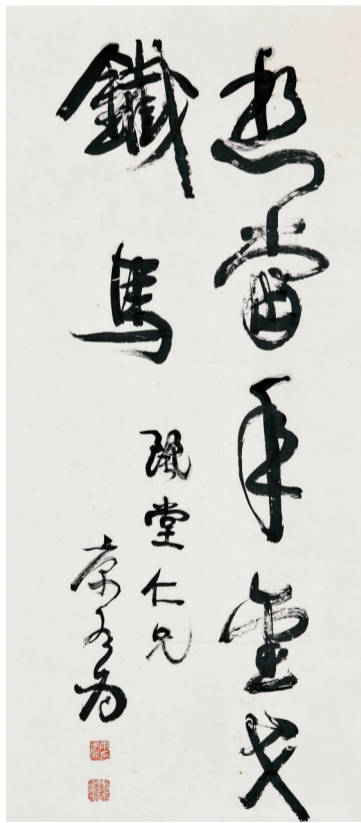 想當年金戈
鐵馬
珮堂仁兄
康有為